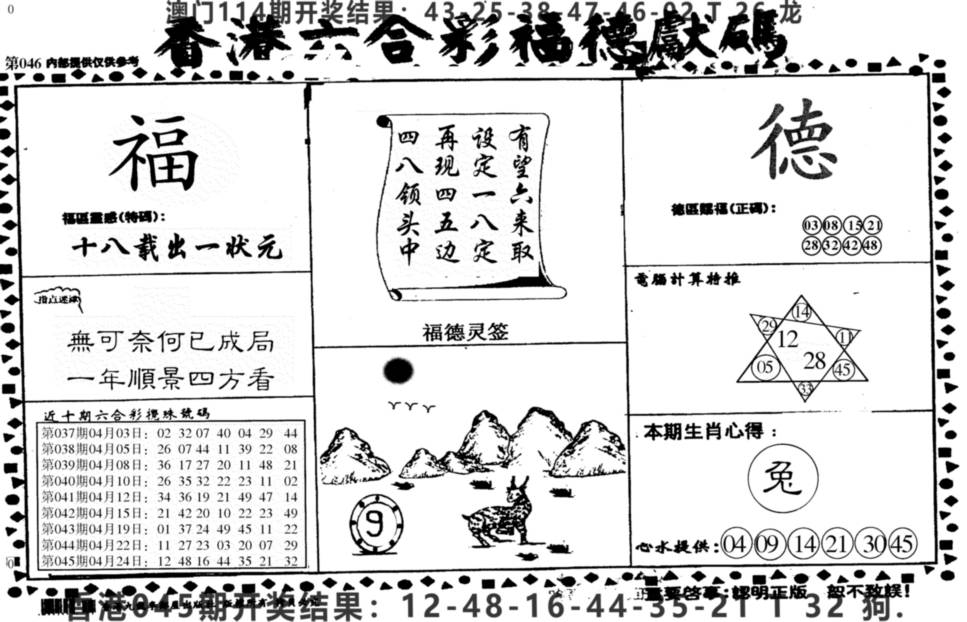 澳门114期开奖结果：43-25-38-47-46-02 T 26 龙
香港六合彩福德獻碼
第046 内部提供仅供参考
福
福區靈感(特碼)：
十八载出一状元
指点迷津
無可奈何已成局
一年順景四方看
近十期六合彩攪珠號碼
第037期04月03日：02 32 07 40 04 29 44
第038期04月05日：26 07 44 11 39 22 08
第039期04月08日：36 17 27 20 11 48 21
第040期04月10日：26 35 32 22 23 11 02
第041期04月12日：34 36 19 21 49 47 14
第042期04月15日：21 42 20 10 22 23 49
第043期04月19日：01 37 24 49 45 11 22
第044期04月22日：11 27 23 03 20 07 29
第045期04月24日：12 48 16 44 35 21 32
有望六来取
设定一八定
再现四五边
四八领头中
福德灵签
9
德
德區賜福(正碼)：
03 08 15 21
28 32 42 48
電腦計算特推
14
29
12
11
28
05
45
33
本期生肖心得：
兔
心水提供：04 09 14 21 30 45
重要啓事：認明正版 恕不致誤！
香港045期开奖结果：12-48-16-44-35-21 T 32 狗.